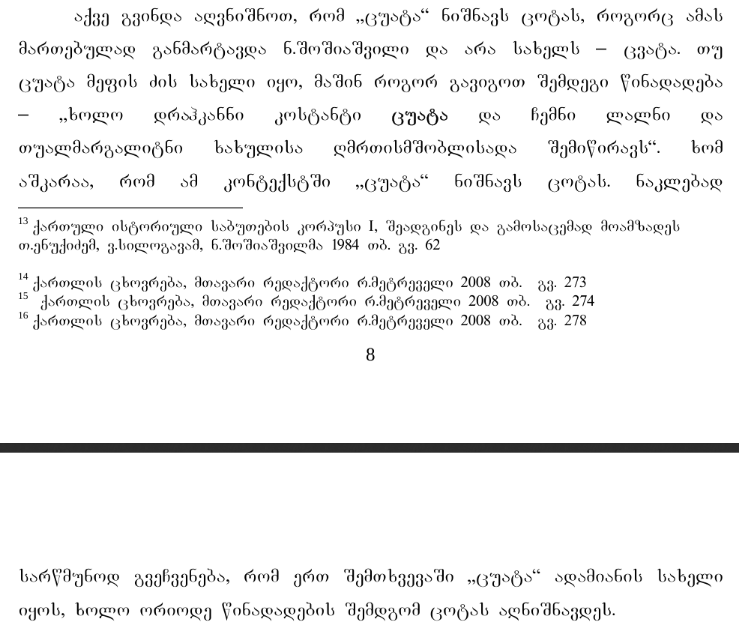 აქვე გვინდა აღვნიშნოთ, რომ „ცუატა“ ნიშნავს ცოტას, როგორც ამას
მართებულად განმარტავდა ნ.შოშიაშვილი და არა სახელს – ცვატა. თუ
ცუატა მეფის ძის სახელი იყო, მაშინ როგორ გავიგოთ შემდეგი წინადადება
– „ხოლო დრაჰკანნი კოსტანტი ცუატა და ჩემნი ლალნი და
თუალმარგალიტნი ხახულისა ღმრთისმშობლისადა შემიწირავს“. ხომ
აშკარაა, რომ ამ კონტექსტში „ცუატა“ ნიშნავს ცოტას. ნაკლებად
13 ქართული ისტორიული საბუთების კორპუსი I, შეადგინეს და გამოსაცემად მოამზადეს
თ.ენუქიძემ, ვ.სილოგავამ, ნ.შოშიაშვილმა 1984 თბ. გვ. 62
14 ქართლის ცხოვრება, მთავარი რედაქტორი რ.მეტრეველი 2008 თბ. გვ. 273
15 ქართლის ცხოვრება, მთავარი რედაქტორი რ.მეტრეველი 2008 თბ. გვ. 274
16 ქართლის ცხოვრება, მთავარი რედაქტორი რ.მეტრეველი 2008 თბ. გვ. 278
8
სარწმუნოდ გვეჩვენება, რომ ერთ შემთხვევაში „ცუატა“ ადამიანის სახელი
იყოს, ხოლო ორიოდე წინადადების შემდგომ ცოტას აღნიშნავდეს.